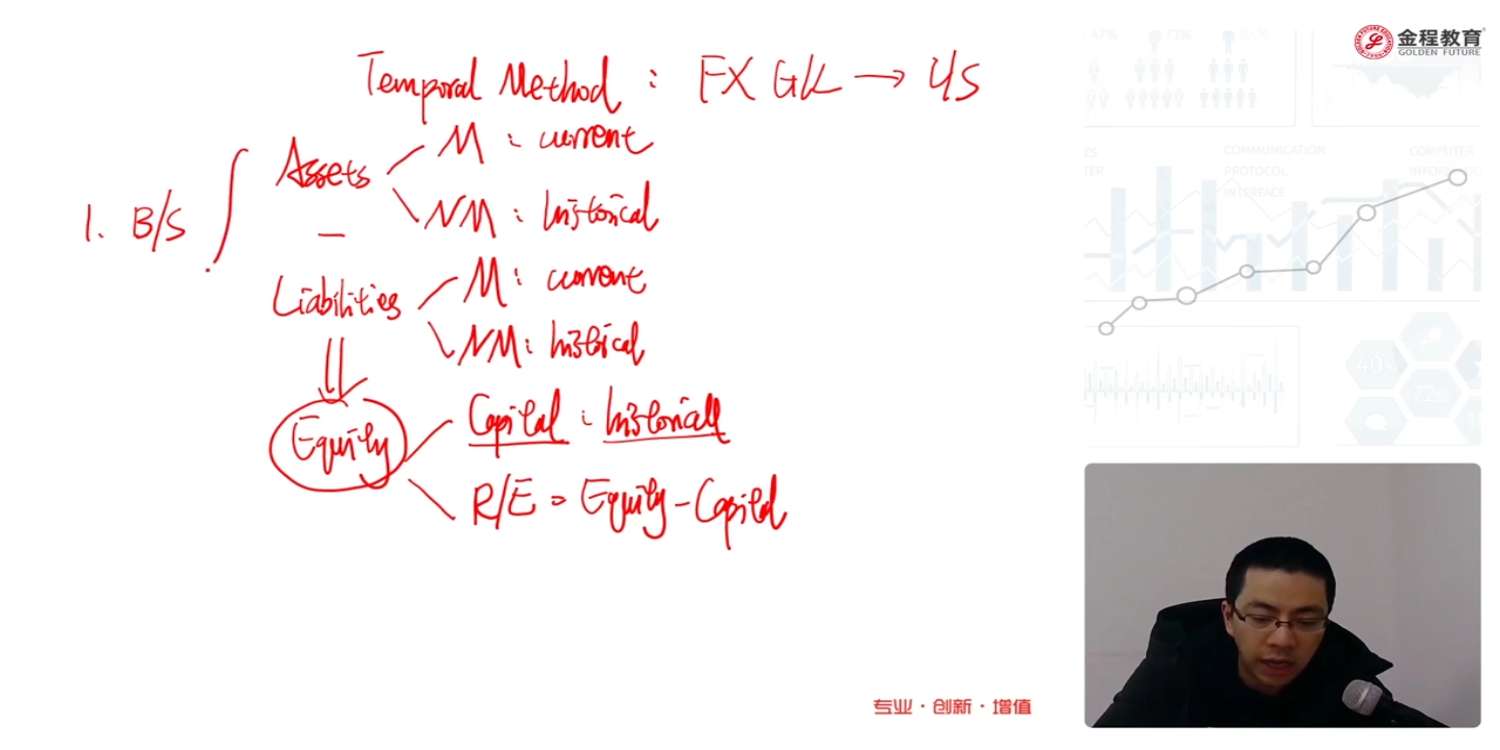 金程教育
GOLDEN FUTURE
Temporal Method : FX G/L → I/S
1. B/S
Assets
M : current
NM : historical
—
Liabilities
M : current
NM : historical
Equity
Capital : historical
R/E = Equity - Capital
COMMUNICATION
PROTOCOL
INTERFACE
COMPUTER
专业·创新·增值